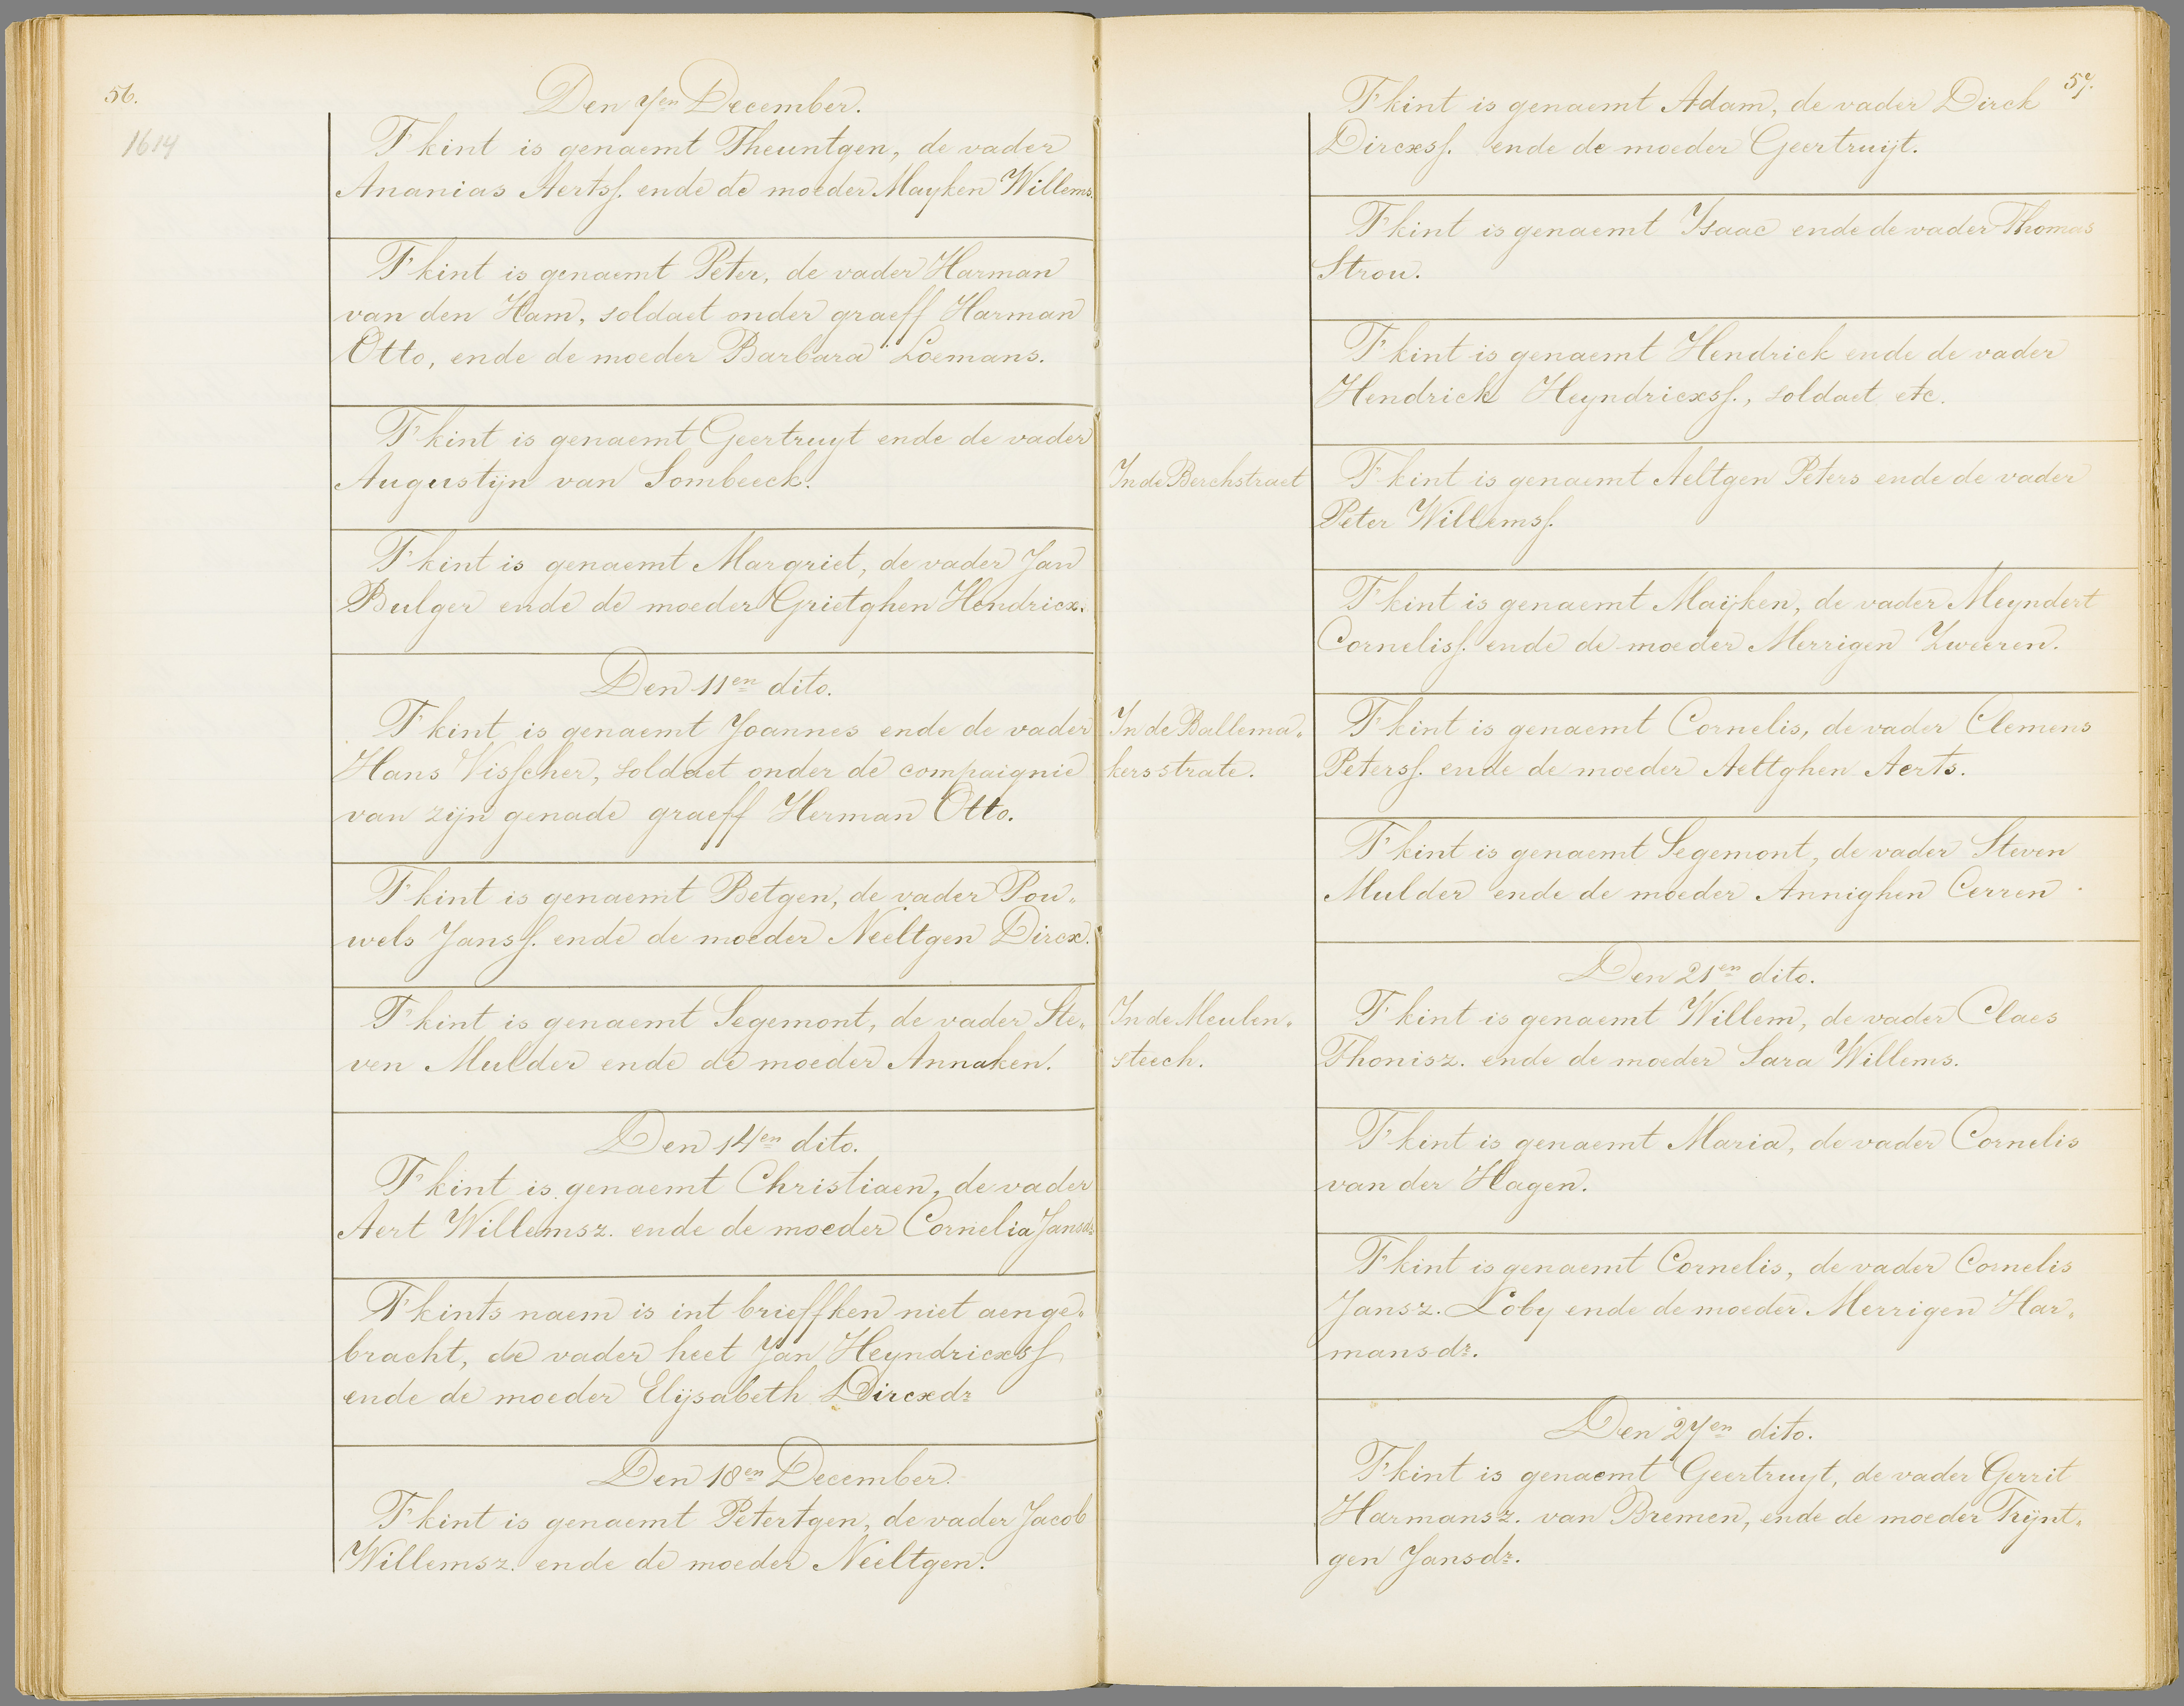 56.
1614
Den 7en December.
T kint is genaemt Theuntgen, de vader
Ananias Aertsf. ende de moeder Mayken Willems.
T kint is genaemt Peter, de vader Harman
van den Ham, soldaet onder graeff Harman
Otto, ende de moeder Barbara Loemans.
T kint is genaemt Geertruyt ende de vader
Augustijn van Sombeeck.
T kint is genaemt Margriet, de vader Jan
Bulger ende de moeder Grietghen Hendricx.
Den 11en dito.
T kint is genaemt Joannes ende de vader
Hans Visscher, soldaet onder de compaignie
van zijn genade graeff Herman Otto.
T kint is genaemt Betgen, de vader Pou„
wels Jansf. ende de moeder Neeltgen Dircx.
T kint is genaemt Segemont, de vader Ste„
ven Mulder ende de moeder Annaken.
Den 14en dito.
T kint is genaemt Christiaen, de vader
Aert Willemsz. ende de moeder Cornelia Jansdr.
T kints naem is int brieffken niet aenge„
bracht, de vader heet Jan Heyndricxsf
ende de moeder Elijsabeth Dircxdr
Den 18en December.
T kint is genaemt Petertgen, de vader Jacob
Willemsz. ende de moeder Neeltgen.
57.
T kint is genaemt Adam, de vader Dirck
Dircxsf. ende de moeder Geertruijt.
T kint is genaemt Ysaac ende de vader Thomas
Strou.
T kint is genaemt Hendrick ende de vader
Hendrick Heyndricxsf., soldaet etc.
In de Berchstraet
T kint is genaemt Aeltgen Peters ende de vader
Peter Willemsf.
T kint is genaemt Maijken, de vader Meyndert
Cornelisf. ende de moeder Merrigen Zweeren.
In de Ballema„
kersstrate.
T kint is genaemt Cornelis, de vader Clemens
Petersf. ende de moeder Aeltghen Aerts.
T kint is genaemt Segemont, de vader Steven
Mulder ende de moeder Annighen Cerren.
Den 21en dito.
In de Meulen„
steech.
T kint is genaemt Willem, de vader Claes
Thonisz. ende de moeder Sara Willems.
T kint is genaemt Maria, de vader Cornelis
van der Hagen.
T kint is genaemt Cornelis, de vader Cornelis
Jansz. Loby ende de moeder Merrigen Har„
mansdr.
Den 27en dito.
T kint is genaemt Geertruyt, de vader Gerrit
Harmansz. van Bremen, ende de moeder Trijnt„
gen Jansdr.